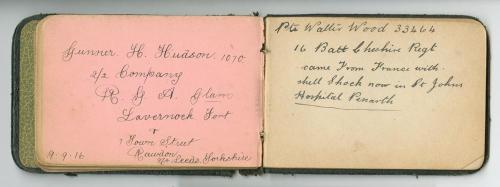 Gunner. H. Hudson. 1070.
2/2 Company
R G A. Glam
Lavernock Fort
+
7 Town Street
Rawdon
Nr Leeds. Yorkshire
9.9.16
Pte Walter Wood 33464
16 Batt Cheshire Regt
came From France with
shell Shock now in St Johns
Hospital Penarth